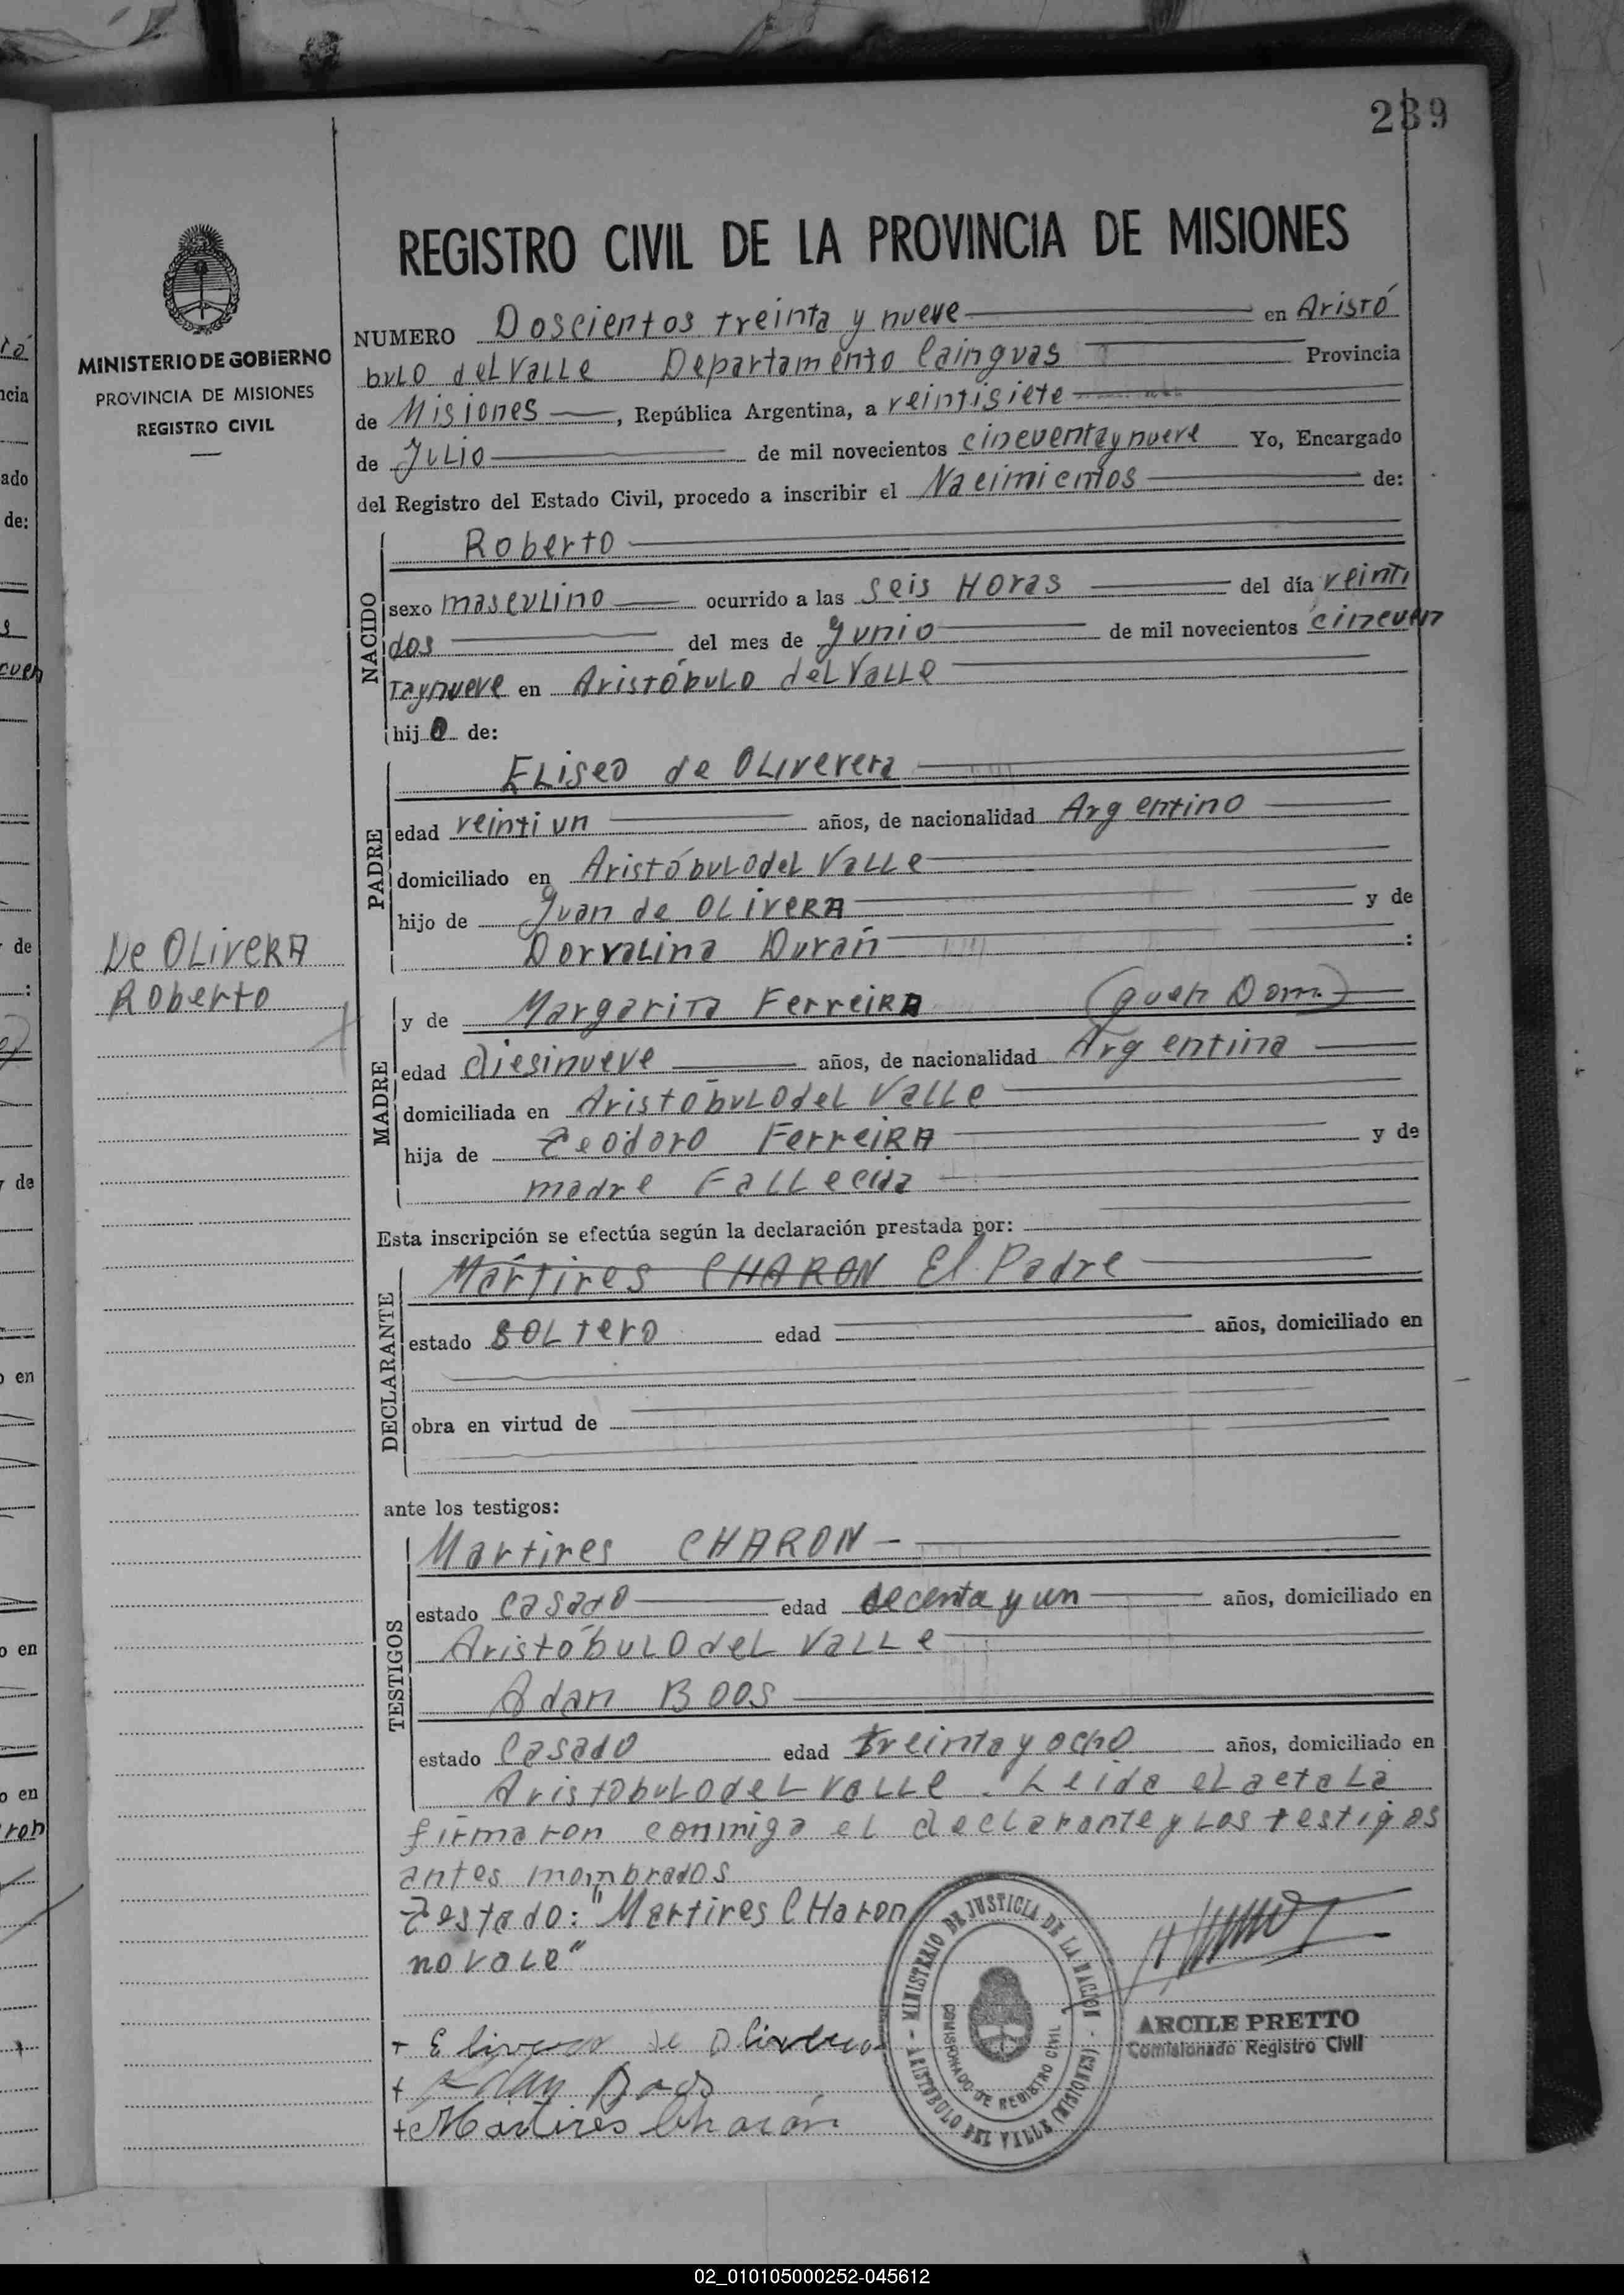 239
REGISTRO CIVIL DE LA PROVINCIA DE MISIONES
MINISTERIO DE GOBIERNO
PROVINCIA DE MISIONES
REGISTRO CIVIL
NUMERO Doscientos treinta y nueve en Aristó
bulo del Valle Departamento Cainguas Provincia
de Misiones, República Argentina, a veintisiete
de Julio de mil novecientos cincuenta y nueve Yo, Encargado
del Registro del Estado Civil, procedo a inscribir el Nacimientos de:
NACIDO
Roberto
sexo masculino ocurrido a las seis Horas del día veinti
dos del mes de Junio de mil novecientos cincuen
ta y nueve en Aristóbulo del Valle
hijo de:
PADRE
Eliseo de Oliverera
edad veinti un años, de nacionalidad Argentino
domiciliado en Aristóbulo del Valle
hijo de Juan de OLiveRA y de
Dorvalina Durañ :
De OLiveRA
Roberto
MADRE
y de Margarita FerreiRA (quen Dom.)
edad diesinueve años, de nacionalidad Argentina
domiciliada en Aristóbulo del Valle
hija de Teodoro FerreiRA y de
madre Fallecida
Esta inscripción se efectúa según la declaración prestada por:
DECLARANTE
Mártires CHARON El Padre
estado soltero edad años, domiciliado en
obra en virtud de
ante los testigos:
TESTIGOS
Martires CHARON -
estado casado edad secenta y un años, domiciliado en
Aristóbulo del Valle
Adan BOOS
estado Casado edad treinta y ocho años, domiciliado en
Aristobulo del valle. Leida el acta La
firmaron conmigo el declarante y Los testigos
antes mombrados
Testado: "Martires CHaron
no vale"
+ de
+ Adan Boos
+ Martires Charón
MINISTERIO DE JUSTICIA DE LA NACION
COMISIONADO DE REGISTRO CIVIL
- ARISTOBULO DEL VALLE (MISIONES) -
ARCILE PRETTO
Comisionado Registro Civil
02_010105000252-045612